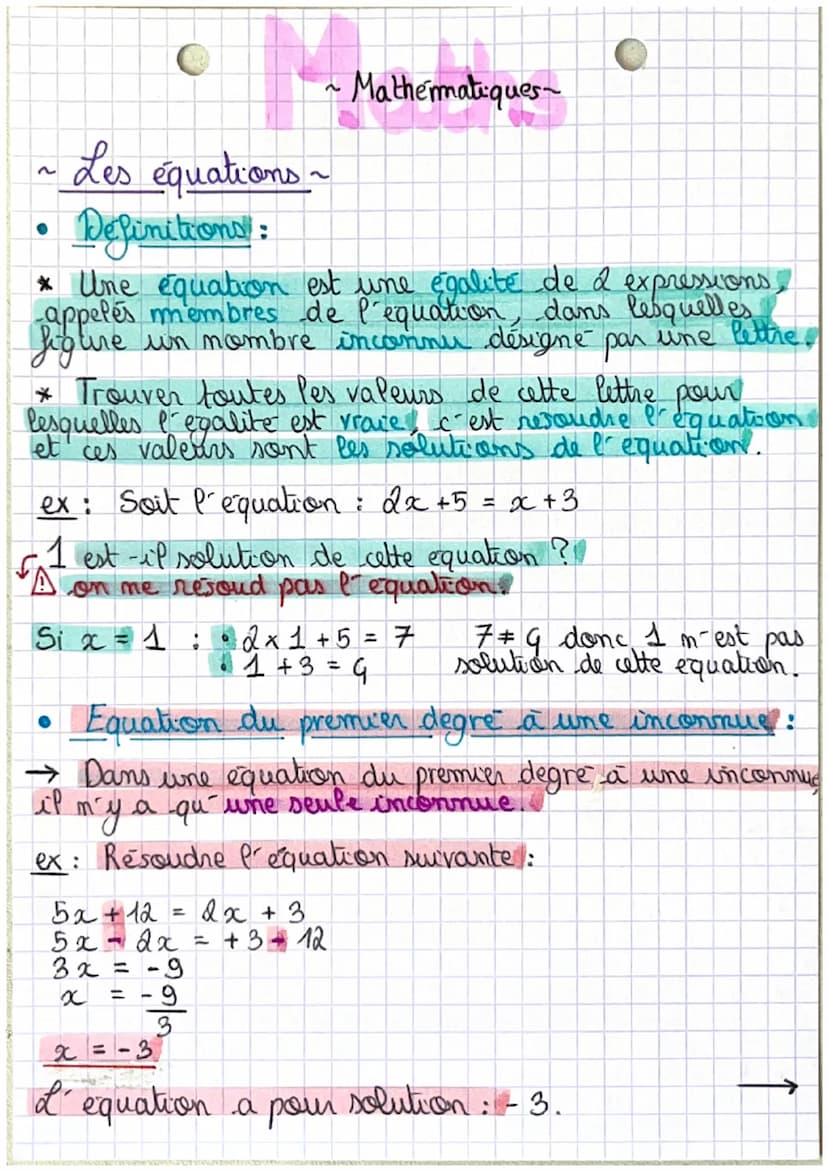 Maths
~ Mathématiques ~
~ Les équations ~
• Définitions :
* Une équation est une égalité de 2 expressions,
appelés membres de l'équation, dans lesquelles
figure un nombre inconnu désigné par une lettre.
* Trouver toutes les valeurs de cette lettre pour
lesquelles l'égalité est vraie, c'est résoudre l'équation
et ces valeurs sont les solutions de l'équation.
ex : Soit l'équation : 2x + 5 = x + 3
1 est-il solution de cette équation ?
⚠ on ne résoud pas l'équation.
Si x = 1 : • 2 x 1 + 5 = 7 7 ≠ 4 donc 1 n'est pas
• 1 + 3 = 4 solution de cette équation.
• Equation du premier degré à une inconnue :
→ Dans une équation du premier degré à une inconnue
il n'y a qu'une seule inconnue.
ex : Résoudre l'équation suivante :
5x + 12 = 2x + 3
5x - 2x = + 3 - 12
3x = -9
x = -9
3
x = -3
L'équation a pour solution : - 3.
→